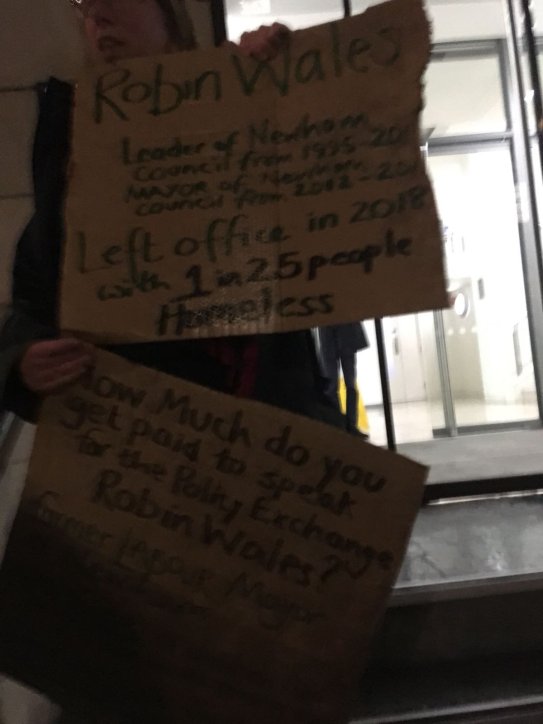 Robin Wales
Leader of Newham
council from 1995-20
MAYOR of Newham
council from 2012-20
Left office in 2018
with 1 in 25 people
Homeless
How Much do you
get paid to speak
for the Policy Exchange
Robin Wales?
former LABOUR Mayor